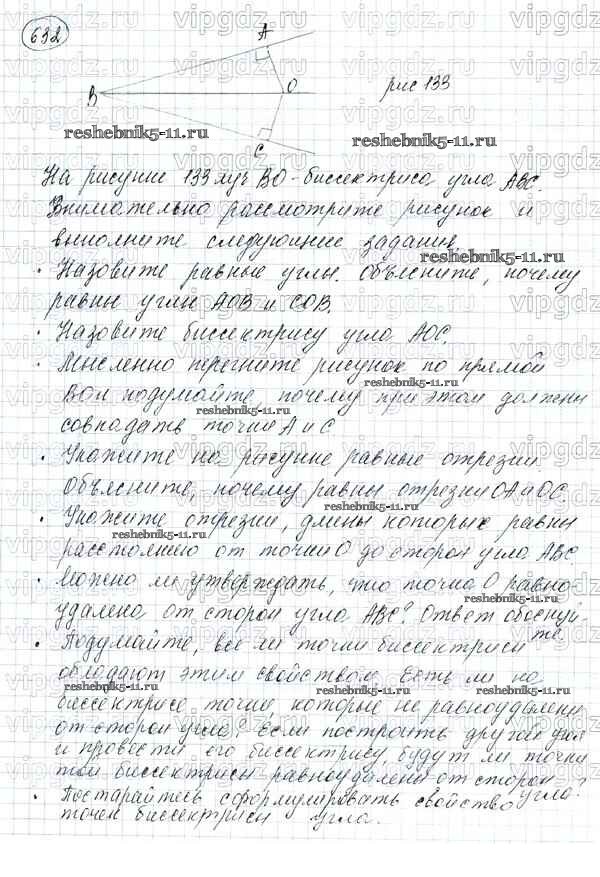 632
A
B
O
C
рис 133
На рисунке 133 луч BO - биссектриса угла ABC.
Внимательно рассмотрите рисунок и
выполните следующие задания
• Назовите равные углы. Объясните, почему
равны углы AOB и COB.
• Назовите биссектрису угла AOC.
• Мысленно перегните рисунок по прямой
BO и подумайте, почему при этом должны
совпадать точки A и C
• Укажите на рисунке равные отрезки.
Объясните, почему равны отрезки OA и OC.
• Укажите отрезки, длины которых равны
расстоянию от точки O до сторон угла ABC.
• Можно ли утверждать, что точка O равно-
удалена от сторон угла ABC? Ответ обоснуй-
те.
• Подумайте, все ли точки биссектрисы
обладают этим свойством. Есть ли на
биссектрисе точки, которые не равноудалены
от сторон угла? Если построить другой угол
и провести его биссектрису, будут ли точки
той биссектрисы равноудалены от сторон
угла?
• Постарайтесь сформулировать свойство
точек биссектрисы угла.
vipgdz.ru
reshebnik5-11.ru